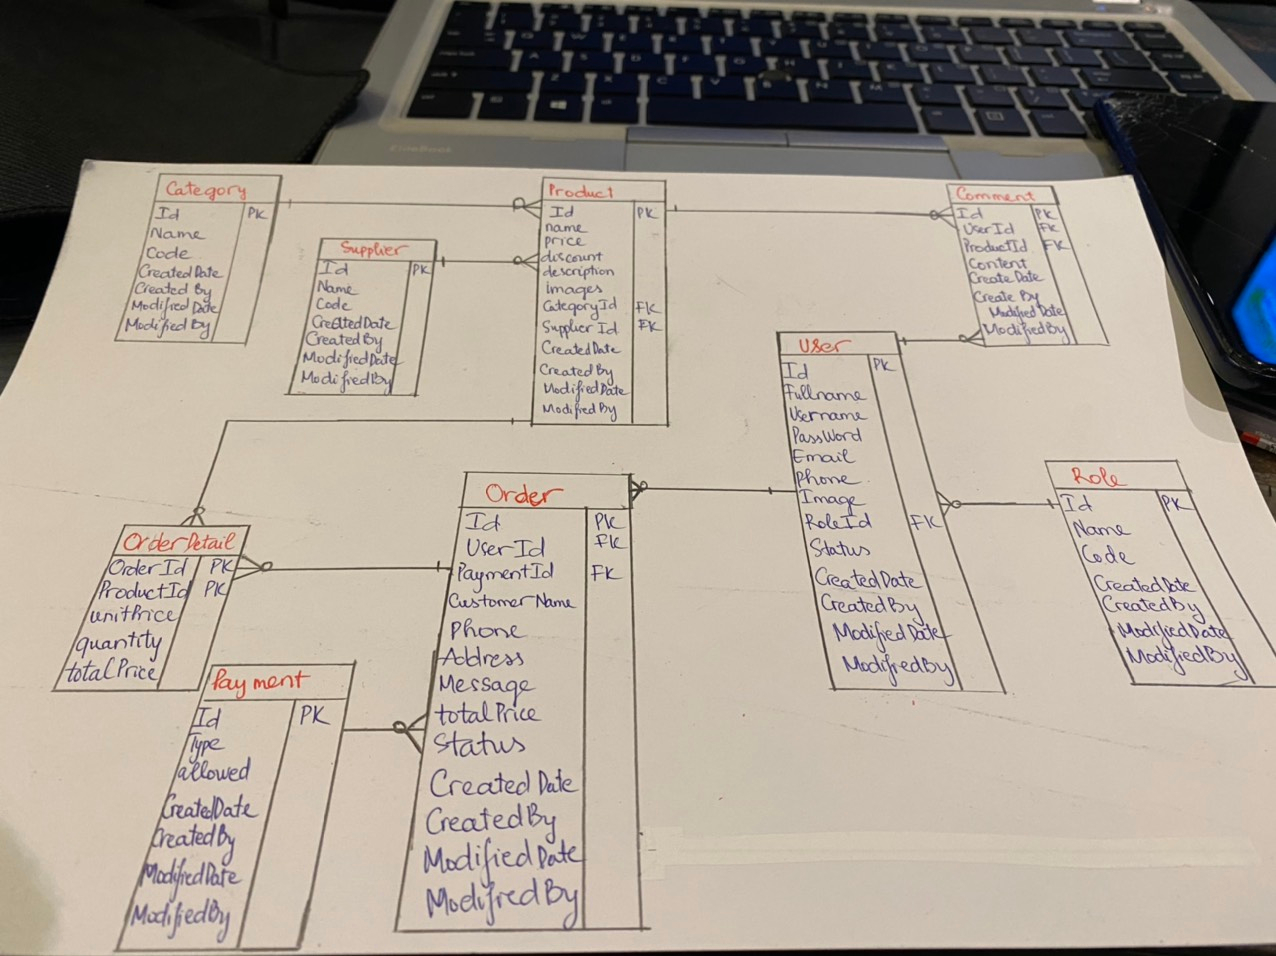 Category
Id PK
Name
Code
Created Date
Created By
Modified Date
Modified By
Supplier
Id PK
Name
Code
CreatedDate
CreatedBy
ModifiedDate
ModifiedBy
Product
Id PK
name
price
discount
description
Images
CategoryId FK
Supplier Id FK
CreatedDate
CreatedBy
ModifiedDate
ModifiedBy
Comment
Id PK
UserId FK
ProductId FK
Content
Create Date
Create By
Modified Date
ModifiedBy
User
Id PK
Fullname
Username
PassWord
Email
Phone
Image
RoleId FK
Status
CreatedDate
CreatedBy
Modified Date
ModifiedBy
Role
Id PK
Name
Code
CreatedDate
CreatedBy
ModifiedDate
ModifiedBy
Order
Id PK
UserId FK
PaymentId FK
CustomerName
Phone
Address
Message
totalPrice
Status
Created Date
CreatedBy
ModifiedDate
ModifiedBy
OrderDetail
OrderId PK
ProductId PK
unitPrice
quantity
totalPrice
Payment
Id PK
Type
allowed
CreatedDate
CreatedBy
ModifiedDate
ModifiedBy